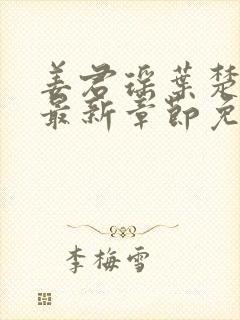 姜君瑶叶楚
最新章节免
李梅雪